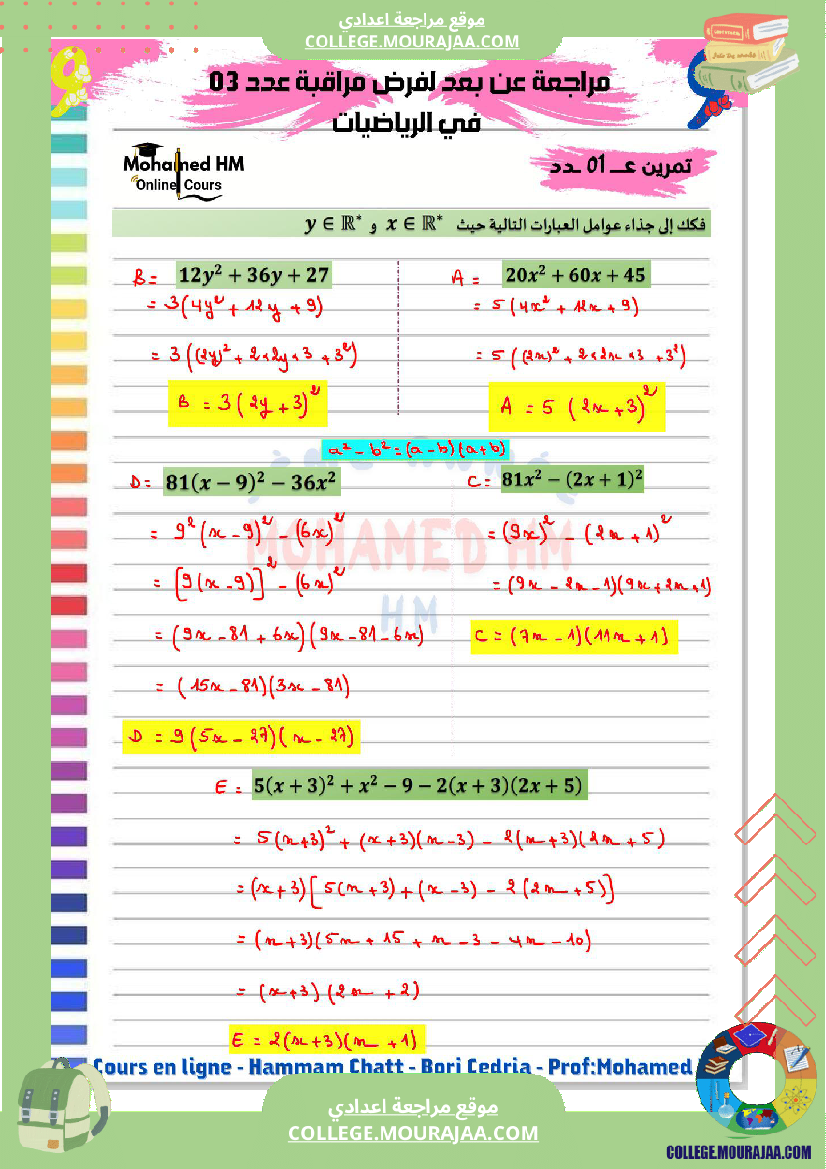 موقع مراجعة اعدادي
COLLEGE.MOURAJAA.COM
مراجعة عن بعد لفرض مراقبة عدد 03
في الرياضيات
Mohamed HM
Online Cours
تمرين عــ 01 ــدد
فكك إلى جذاء عوامل العبارات التالية حيث x ∈ ℝ* و y ∈ ℝ*
A = 20x² + 60x + 45
= 5(4x² + 12x + 9)
= 5((2x)² + 2×2x×3 + 3²)
A = 5(2x+3)²
B = 12y² + 36y + 27
= 3(4y² + 12y + 9)
= 3((2y)² + 2×2y×3 + 3²)
B = 3(2y+3)²
a² - b² = (a-b)(a+b)
C = 81x² − (2x + 1)²
= (9x)² - (2x+1)²
= (9x - 2x - 1)(9x + 2x + 1)
C = (7x - 1)(11x + 1)
D = 81(x − 9)² − 36x²
= 9²(x-9)² - (6x)²
= [9(x-9)]² - (6x)²
= (9x - 81 + 6x)(9x - 81 - 6x)
= (15x - 81)(3x - 81)
D = 9(5x - 27)(x - 27)
E = 5(x + 3)² + x² − 9 − 2(x + 3)(2x + 5)
= 5(x+3)² + (x+3)(x-3) - 2(x+3)(2x+5)
= (x+3)[5(x+3) + (x-3) - 2(2x+5)]
= (x+3)(5x + 15 + x - 3 - 4x - 10)
= (x+3)(2x + 2)
E = 2(x+3)(x+1)
MOHAMED HM
HM
Cours en ligne - Hammam Chatt - Borj Cedria - Prof:Mohamed
موقع مراجعة اعدادي
COLLEGE.MOURAJAA.COM
COLLEGE.MOURAJAA.COM